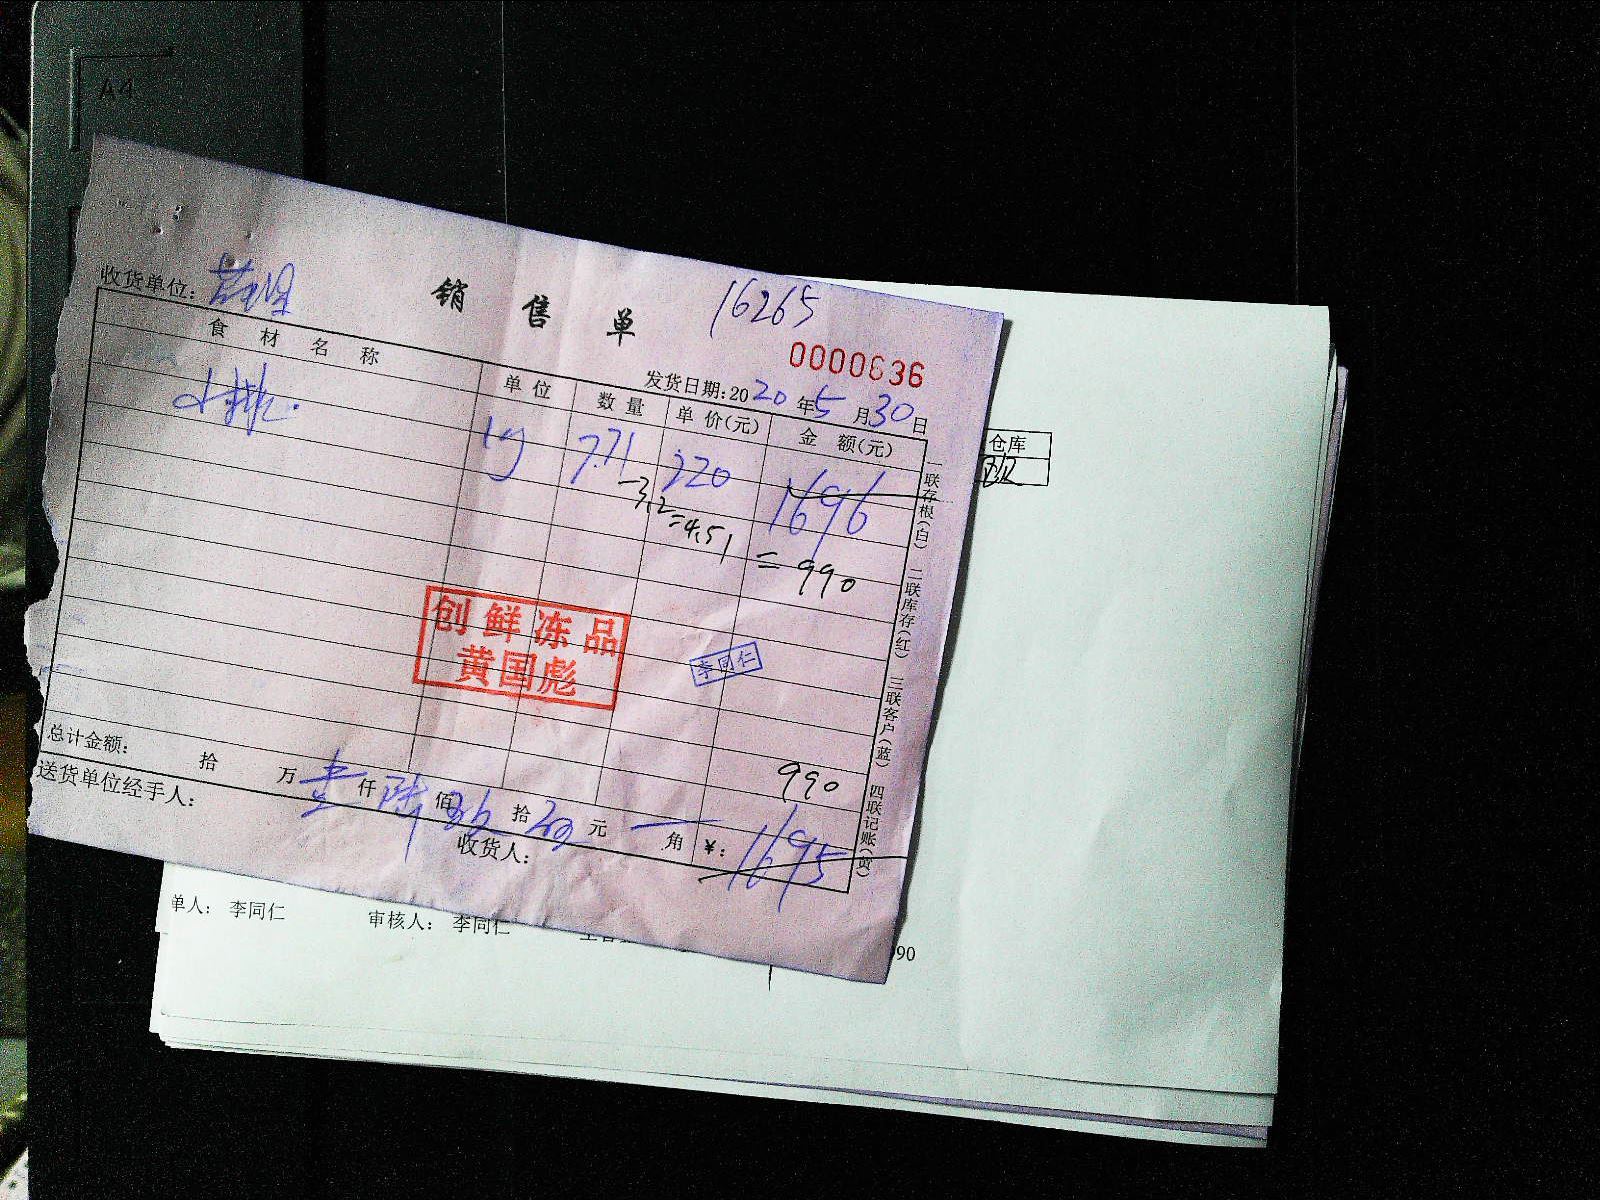 A4
收货单位:
销售单
16265
0000636
发货日期:2020年5月30日
食材名称 单位 数量 单价(元) 金额(元)
小排. kg 7.71 220 1696
-3.2=4.51 =990
创鲜冻品
黄国彪
李同仁
990
总计金额: 拾 万 壹 仟 陆 佰 玖 拾 元 角 ¥: 1695
送货单位经手人:
收货人:
一联存根(白) 二联库存(红) 三联客户(蓝) 四联记账(黄)
仓库
单人: 李同仁 审核人: 李同仁
90